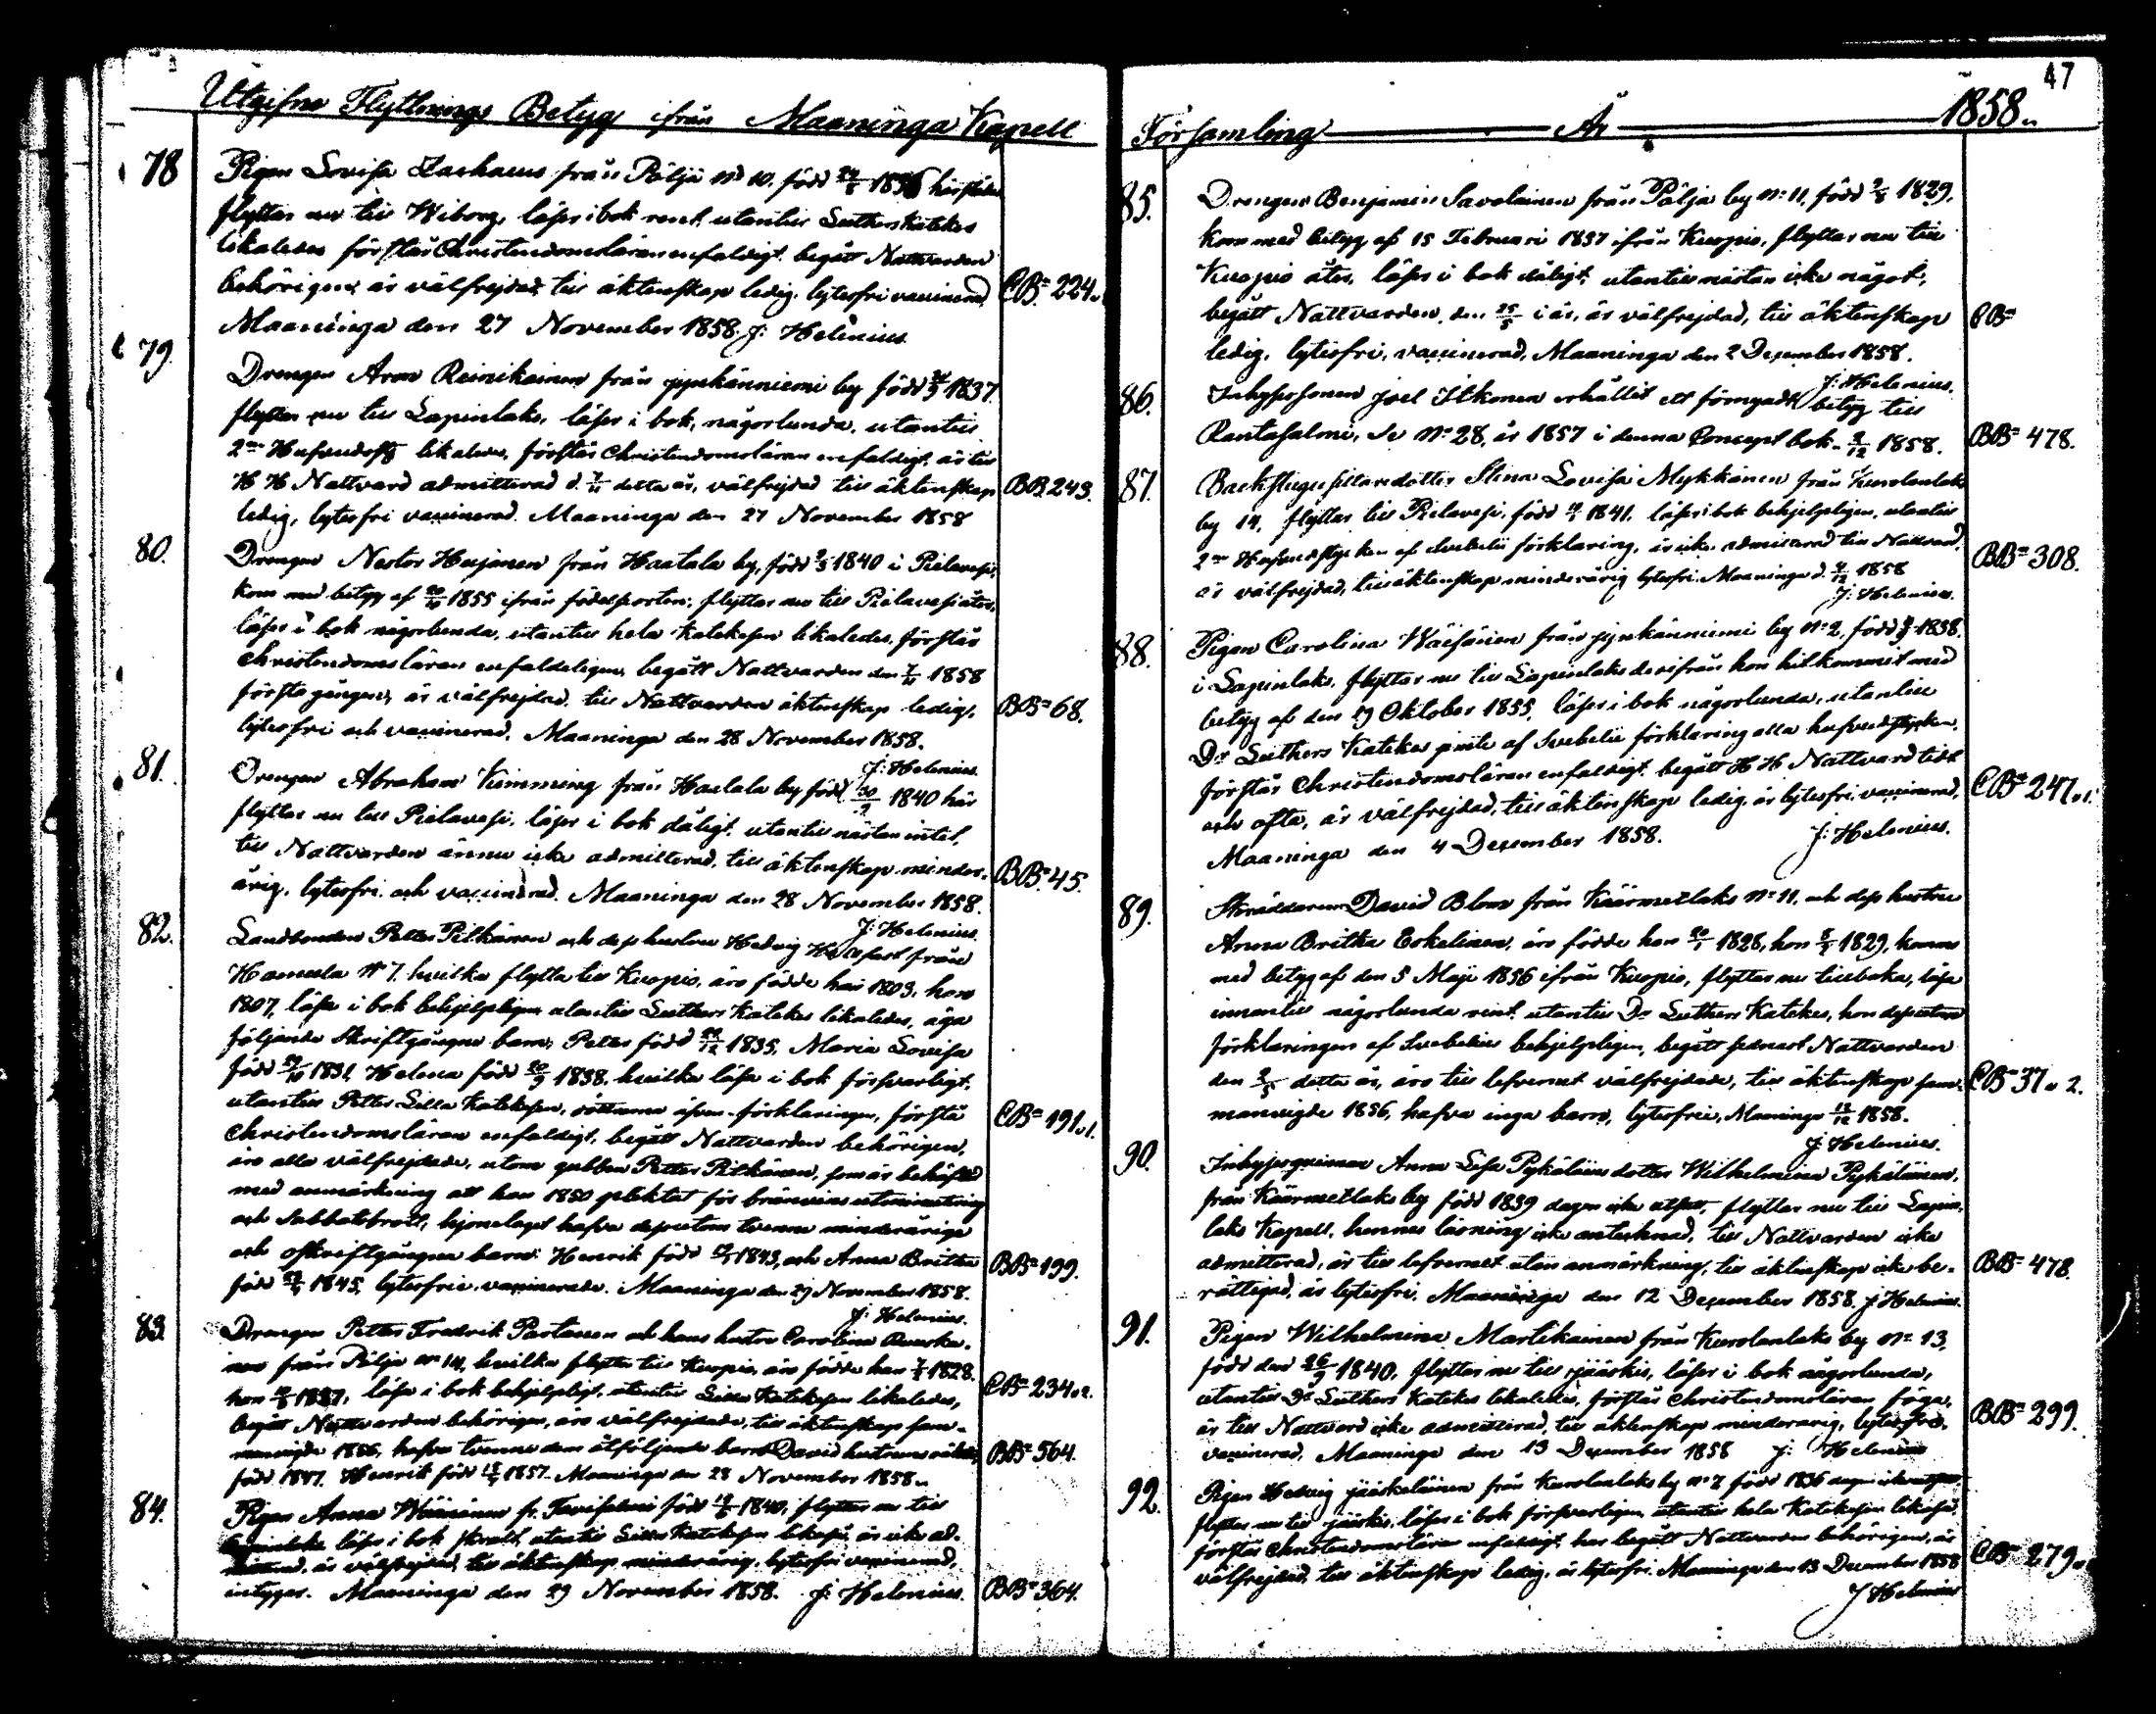 47
Utgifne Flyttnings Betyg ifrån Maaninga Kapell
Församling År 1858.
78 Pigan Lovisa Zachaeus från Pöljä No 10, född 24/8 1836 härstädes
flyttar nu till Wiborg, läser i bok rent, utantill Luthers Katekes
likaledes förstår Christendomsläran enfaldigt, begått Nattvarden
behörigen, är välfrejdad, till äktenskap ledig, lytesfri vaccinerad, CB= 224.
Maaninga den 27 November 1858. J: Helenius
79. Drengen Aron Reinikainen från Jynkänniemi by född 1837.
flyttar nu till Lapinlaks, läser i bok, någorlunda, utantill
2ne Hufvudst likaledes, förstår Christendomsläran enfaldigt, är till
H H Nattvard admitterad d. 7/11 detta år, välfrejdad till äktenskap BB 243.
ledig, lytesfri vaccinerad. Maaninga den 27 November 1858
80. Drengen Nestor Hujanen från Haatala by, född 2/3 1840 i Pielavesi,
kom med betyg af 1855 ifrån födelseorten, flyttar nu till Pielavesi åter,
läser i bok någorlunda, utantill hela Katekesen likaledes, förstår
Christendoms läran enfaldeligen, begått Nattvarden den 7/11 1858
första gången, är välfrejdad, till Nattvarden äktenskap ledig, BB= 68.
lytesfri och vaccinerad. Maaninga den 28 November 1858.
J: Helenius.
81. Drengen Abraham Kimming från Haatala by född 30/9 1840 här
flyttar nu till Pielavesi, läser i bok dåligt, utantill nästan intet,
till Nattvarden ännu icke admitterad, till äktenskap minder- BB= 45.
årig, lytesfri och vaccinerad. Maaninga den 28 November 1858.
J: Helenius.
82. Landbonden Petter Pitkänen och dess hustru Hedvig från
Hamula No 7. hvilka flytta till Kuopio, äro födde han 1803, hon
1807, läsa i bok behjelpligen utantill Luthers Katekes likaledes, äga
följande Skriftgångne barn, Petter född 1835, Maria Lovisa
född 1831, Helena född 20/9 1838. hvilka läsa i bok försvarligt,
utantill Petter Lilla Katekesen, döttrarna äfven förklaringen, förstå
Christendomsläran enfaldigt, begått Nattvarden behörigen, CB= 191.1.
äro alla välfrejdade, utom gubben Petter Pitkänen, som är behäftad
med anmärkning att han 1850 pliktat för bränvins utminutering
och Sabbatsbrott, hjonelaget hafva dessutom tvenne minderåriga
och oskriftgångna barn: Henrik född 1843, och Anna Britta BB= 199.
född 1845, lytesfrie vaccinerade. Maaninga den 29 November 1858.
J: Helenius.
83. Drengen Petter Fredrik Partanen och hans hustru Carolina
från Pöljä No 14, hvilka flytta till Kuopio, äro födde han 1828.
hon 1827, läsa i bok behjelpligt, utantill Lilla Katekesen likaledes, CB= 234.2.
begått Nattvarden behörigen, äro välfrejdade, till äktenskap sam-
manvigde 1856, hafva tvenne dem åtföljande barn David hustruns oäkta BB= 564.
född 1847. Henrik född 1857. Maaninga den 28 November 1858.
84. Pigan Anna Wäänänen fr. född 1840, flyttar nu till
Lapinlaks läser i bok utantill Lilla Katekesen likaså, är icke ad-
mitterad, är välfrejdad, till äktenskap minderårig, lytesfri vaccinerad,
intygar. Maaninga den 29 November 1858. J: Helenius. BB= 364.
85. Drengen Benjamin Savolainen från Pöljä by No 11, född 2/8 1829,
kom med betyg af 15 Februari 1857 ifrån Kuopio, flyttar nu till
Kuopio åter, läser i bok dåligt, utantill nästan icke något,
begått Nattvarden, den 25/5 i år, är välfrejdad, till äktenskap CB=
ledig, lytesfri, vaccinerad, Maaninga den 2 December 1858.
J: Helenius.
86. Inhysesonen Joel Itkonen erhållit ett förnyadt betyg till
Rantasalmi, Se No 28, år 1857 i denna Concept bok. 3/12 1858. BB= 478.
87. Backstugusittaredotter Stina Lovisa Mykkänen från Kurolanlaks
by 14, flyttar till Pielavesi, född 1841. läser i bok behjelpligen, utantill
2ne Hufvudstycken af Svebelii förklaring, är icke admitterad till Nattvard,
är välfrejdad, till äktenskap minderårig lytesfri. Maaninga d. 4/12 1858 BB= 308.
J: Helenius.
88. Pigan Carolina Wäisänen från Jynkänniemi by No 2, född 1838.
i Lapinlaks, flyttar nu till Lapinlaks derifrån hon hitkommit med
betyg af den 19 Oktober 1855, läser i bok någorlunda, utantill
Dr Luthers Katekes jemte af Svebelii förklaring alla hufvudstycken,
förstår Christendomsläran enfaldigt, begått H H Nattvard titt
och ofta, är välfrejdad, till äktenskap ledig, är lytesfri vaccinerad, CB= 247.1.
Maaninga den 4 December 1858. J: Helenius.
89. Skräddaren David Blom från Käärmetlaks No 11. och dess hustru
Anna Britta Eskelinen, äro födde han 1828, hon 1829, komne
med betyg af den 5 Maji 1856 ifrån Kuopio, flyttar nu tillbaka, läsa
innantill någorlunda rent, utantill Dr Luthers Katekes, hon dessutom
förklaringen af Svebelius behjelpligen, begått sednast Nattvarden
den 2/5 detta år, äro till lefvernet välfrejdade, till äktenskap sam- CB= 37.2.
manvigde 1856, hafva inga barn, lytesfrie, Maaninga 12/12 1858.
J: Helenius.
90. Inhysesqvinnan Anna Lisa Pykäläinens dotter Wilhelmina Pykäläinen,
från Käärmetlaks by född 1839 dagen icke utsatt, flyttar nu till Lapin-
laks Kapell, hennes läsning icke antecknad, till Nattvarden icke
admitterad, är till lefvernet utan anmärkning, till äktenskap icke be- BB= 478.
rättigad, är lytesfri. Maaninga den 12 December 1858. J Helenius.
91. Pigan Wilhelmina Martikainen från Kurolanlaks by No 13,
född den 26/9 1840, flyttar nu till Jääskis, läser i bok någorlunda,
utantill Dr Luthers Katekes likaledes, förstår Christendomsläran föga,
är till Nattvard icke admitterad, till äktenskap minderårig, lytesfri, BB= 299.
vaccinerad, Maaninga den 13 December 1858 J: Helenius
92. Pigan Hedvig Jääskeläinen från Kurolanlaks by No 7 född 1836 dagen icke
flyttar nu till Jääskis, läser i bok försvarligen, utantill hela Katekesen likaså
förstår Christendomsläran enfaldigt, har begått Nattvarden behörigen, är
välfrejdad, till äktenskap ledig, är lytesfri. Maaninga den 13 December 1858 CB= 279.
J Helenius